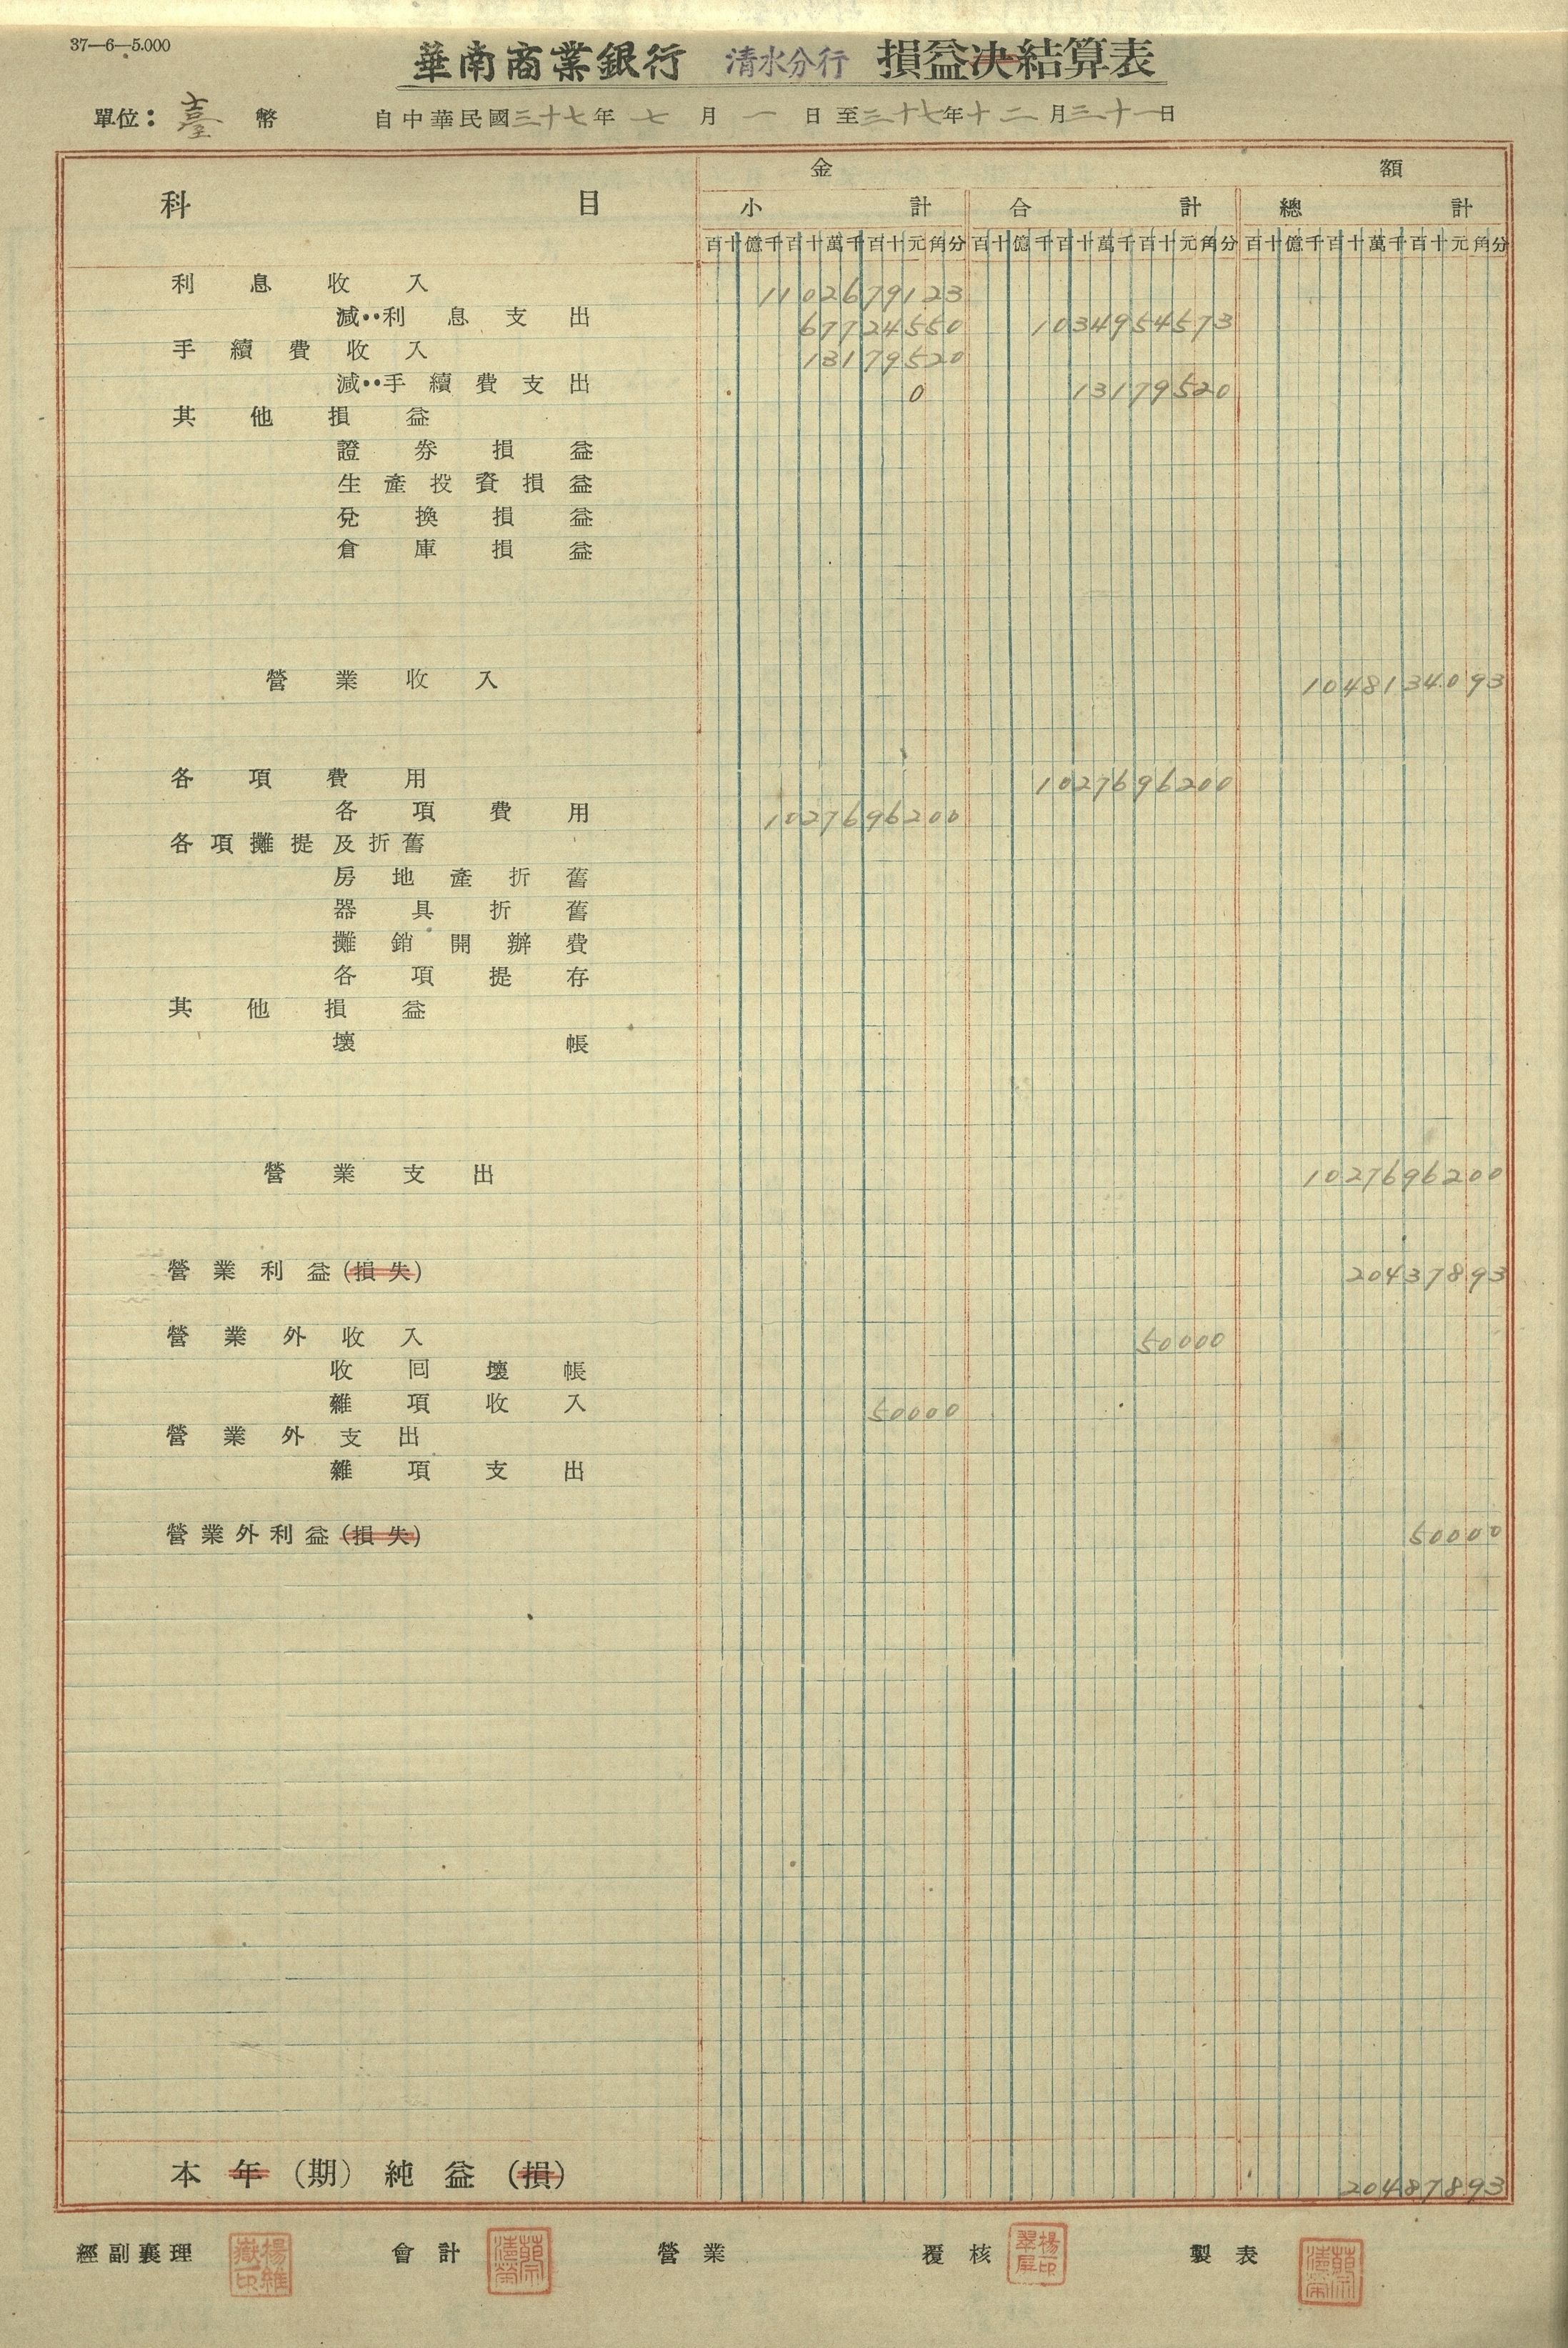 37—6—5.000
華南商業銀行 清水分行 損益決結算表
單位：臺幣 自中華民國三十七年七月一日至三十七年十二月三十一日
科目 金額
小計 合計 總計
百十億千百十萬千百十元角分 百十億千百十萬千百十元角分 百十億千百十萬千百十元角分
利息收入 1102679123
減··利息支出 67724550 1034954573
手續費收入 13179520
減··手續費支出 0 13179520
其他損益
證券損益
生產投資損益
兌換損益
倉庫損益
營業收入 1048134093
各項費用 1027696200
各項費用 1027696200
各項攤提及折舊
房地產折舊
器具折舊
攤銷開辦費
各項提存
其他損益
壞帳
營業支出 1027696200
營業利益(損失) 20437893
營業外收入 50000
收回壞帳
雜項收入 50000
營業外支出
雜項支出
營業外利益(損失) 50000
本年(期)純益(損) 20487893
經副襄理 會計 營業 覆核 製表
楊維嶽印 楊翠屏印